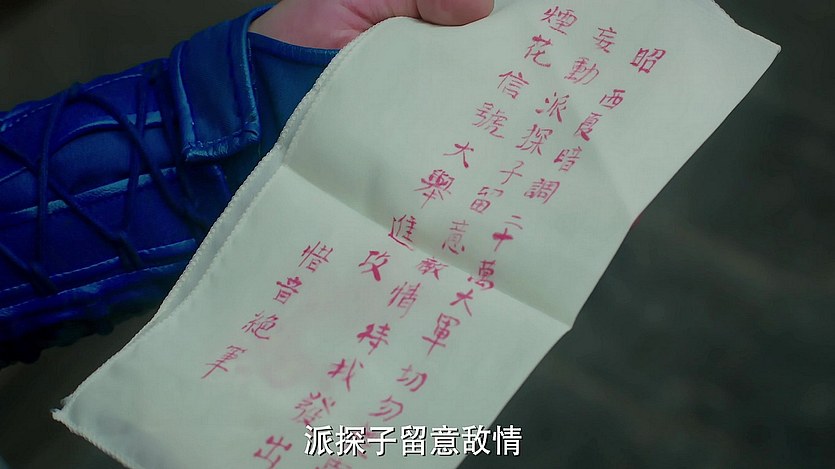 昭
西夏暗調二十萬大軍切勿
妄動派探子留意敵情待我發出
煙花信號大舉進攻
惜音絕筆
派探子留意敌情